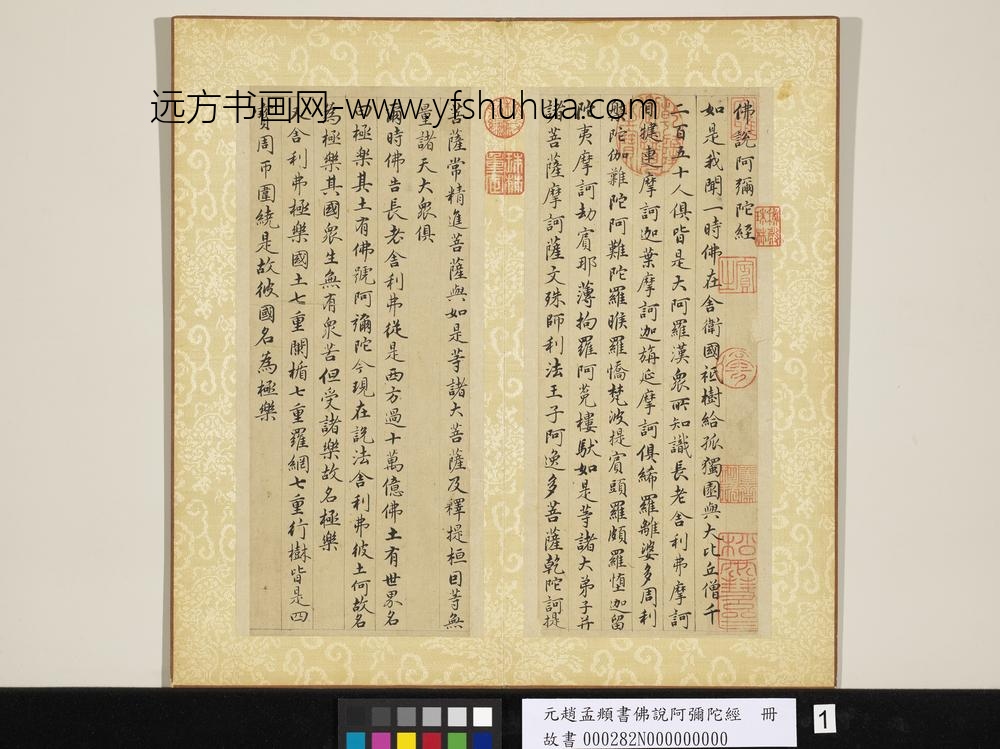 远方书画网-www.yfshuhua.com
佛說阿彌陀經
如是我聞一時佛在舍衛國祇樹給孤獨園與大比丘僧千
二百五十人俱皆是大阿羅漢衆所知識長老舍利弗摩訶
目揵連摩訶迦葉摩訶迦旃延摩訶俱絺羅離婆多周利
槃陀伽難陀阿難陀羅睺羅憍梵波提賓頭羅頗羅墮迦留
陀夷摩訶劫賓那薄拘羅阿㝹樓馱如是等諸大弟子并
諸菩薩摩訶薩文殊師利法王子阿逸多菩薩乾陀訶提
菩薩常精進菩薩與如是等諸大菩薩及釋提桓因等無
量諸天大衆俱
爾時佛告長老舍利弗從是西方過十萬億佛土有世界名
曰極樂其土有佛號阿彌陀今現在說法舍利弗彼土何故名
為極樂其國衆生無有衆苦但受諸樂故名極樂
又舍利弗極樂國土七重闌楯七重羅網七重行樹皆是四
寶周帀圍繞是故彼國名為極樂
元趙孟頫書佛說阿彌陀經 冊
故書 000282N000000000
1